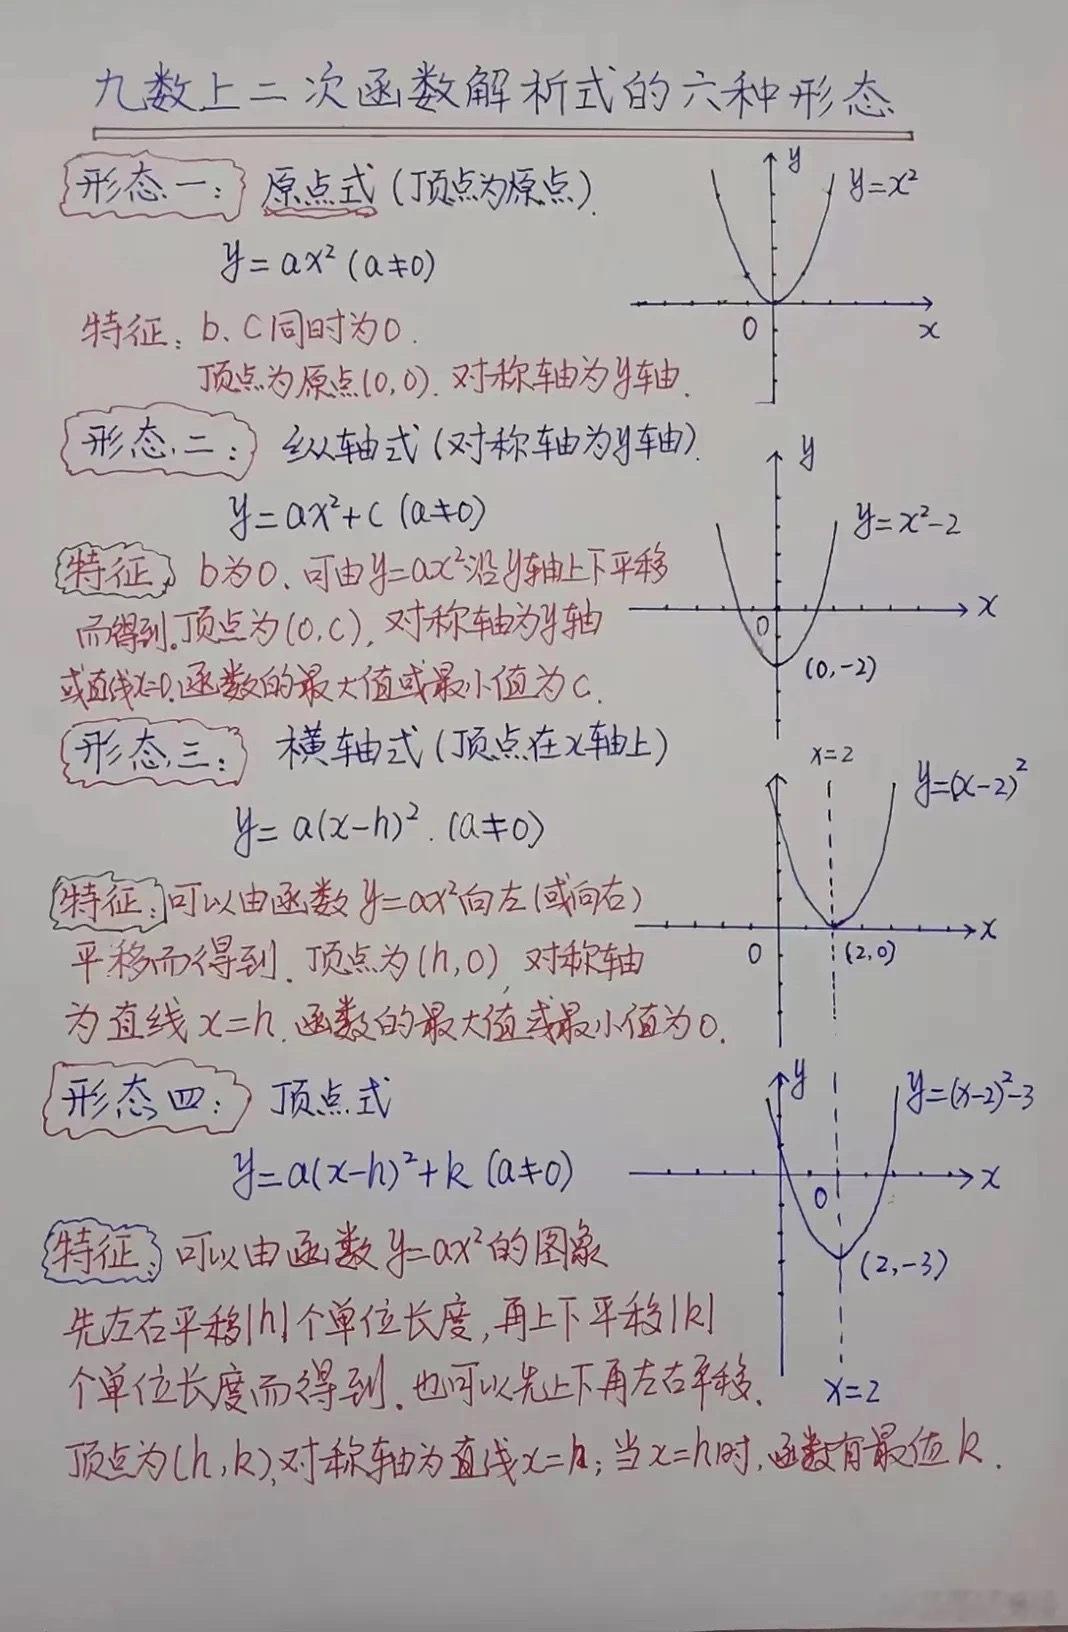 九数上二次函数解析式的六种形态
形态一: 原点式(顶点为原点).
y=ax²(a≠0)
特征: b、c同时为0.
顶点为原点(0,0). 对称轴为y轴.
y
y=x²
0
x
形态二: 纵轴式(对称轴为y轴).
y=ax²+c(a≠0)
特征 b为0. 可由y=ax²沿y轴上下平移
而得到.顶点为(0,c), 对称轴为y轴
或直线x=0.函数的最大值或最小值为c.
y
y=x²-2
x
0
(0,-2)
形态三: 横轴式(顶点在x轴上)
y=a(x-h)².(a≠0)
特征:可以由函数y=ax²向左(或向右)
平移而得到. 顶点为(h,0), 对称轴
为直线x=h.函数的最大值或最小值为0.
x=2
y=(x-2)²
x
0
(2,0)
形态四: 顶点式
y=a(x-h)²+k(a≠0)
特征: 可以由函数y=ax²的图象
先左右平移|h|个单位长度,再上下平移|k|
个单位长度而得到.也可以先上下再左右平移.
顶点为(h,k),对称轴为直线x=h;当x=h时,函数有最值k.
y
y=(x-2)²-3
x
0
(2,-3)
x=2